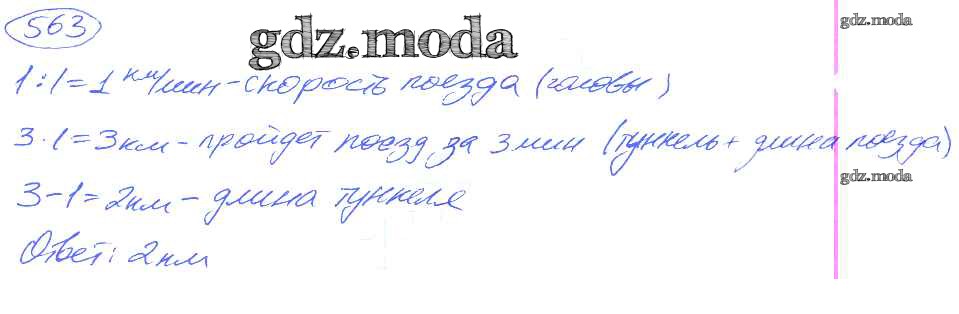 563
gdz.moda
gdz.moda
1:1=1 км/мин - скорость поезда (головы)
3·1=3км - пройдет поезд за 3 мин (туннель + длина поезда)
gdz.moda
3-1=2км - длина туннеля
Ответ: 2км